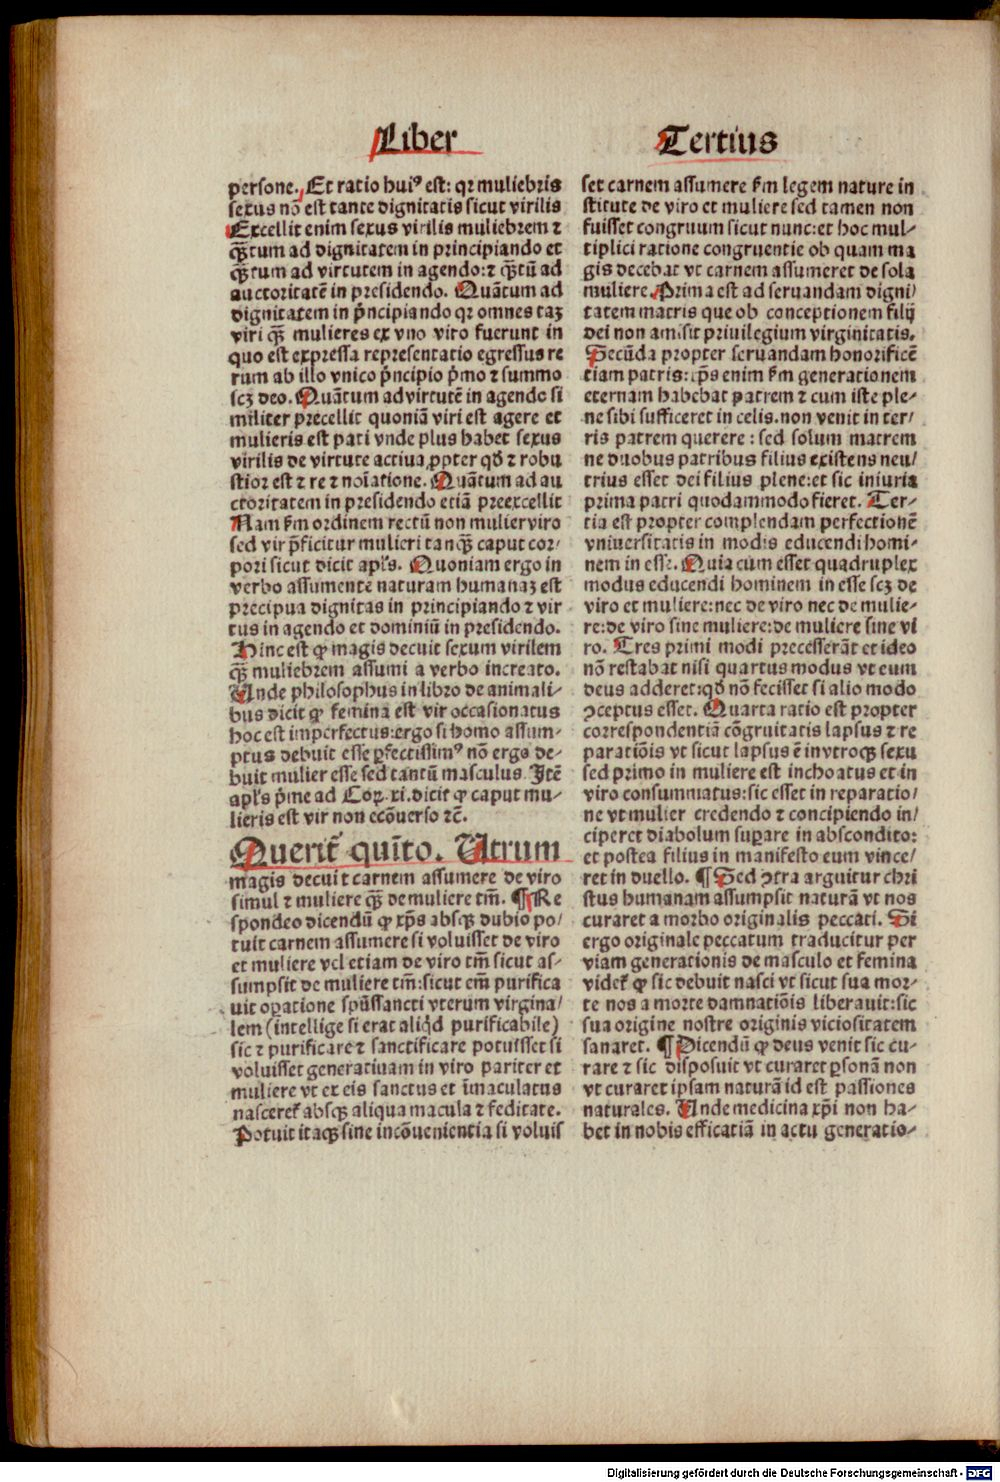 Liber
Tertius
persone. Et ratio huiꝰ est: qꝛ muliebris
sexus nō est tante dignitatis sicut virilis
Excellit enim sexus virilis muliebrem ⁊
q̄ꝫtum ad dignitatem in principiando et
q̄ꝫtum ad virtutem in agendo: ⁊ q̄ꝫtū ad
auctoritatē in presidendo. Quātum ad
dignitatem in p̄ncipiando qꝛ omnes taꝫ
viri q̄ꝫ mulieres ex vno viro fuerunt in
quo est expressa representatio egressus re
rum ab illo vnico p̄ncipio p̄mo ⁊ summo
scꝫ deo. Quātum ad virtutē in agendo si
militer precellit quoniā viri est agere et
mulieris est pati vnde plus habet sexus
virilis de virtute actiua ꝓpter qd̄ ⁊ robu
stior est ⁊ re ⁊ noīatione. Quātum ad au
ctoritatem in presidendo etiā preexcellit
Nam ẜm ordinem rectū non mulier viro
sed vir p̄ficitur mulieri tanq̄ꝫ caput cor⸗
pori sicut dicit apl̓s. Quoniam ergo in
verbo assumente naturam humanaꝫ est
precipua dignitas in principiando ⁊ vir
tus in agendo et dominiū in presidendo.
Hinc est ꝙ magis decuit sexum virilem
q̄ꝫ muliebrem assumi a verbo increato.
Unde philosophus in libro de animali⸗
bus dicit ꝙ femina est vir occasionatus
hoc est imperfectus: ergo si homo assum⸗
ptus debuit esse ꝑfectissimꝰ nō ergo de⸗
buit mulier esse sed tantū masculus. Itē
apl̓s p̄me ad Coꝝ. xi. dicit ꝙ caput mu⸗
lieris est vir non ecōuerso ⁊c̄.
Querit̄ quīto. Utrum
magis decuit carnem assumere de viro
simul ⁊ muliere q̄ꝫ de muliere tm̄. ¶ Re
spondeo dicendū ꝙ xp̄s absqꝫ dubio po⸗
tuit carnem assumere si voluisset de viro
et muliere vel etiam de viro tm̄ sicut as⸗
sumpsit de muliere tm̄: sicut em̄ purifica
uit oꝑatione spūssancti vterum virgina⸗
lem (intellige si erat aliqd̄ purificabile)
sic ⁊ purificare ⁊ sanctificare potuisset si
voluisset generatiuam in viro pariter et
muliere vt ex eis sanctus et īmaculatus
nasceret̄ absqꝫ aliqua macula ⁊ feditate.
Potuit itaqꝫ sine incōuenientia si voluis
set carnem assumere ẜm legem nature in
stitute de viro et muliere sed tamen non
fuisset congruum sicut nunc: et hoc mul⸗
tiplici ratione congruentie ob quam ma
gis decebat vt carnem assumeret de sola
muliere. Prima est ad seruandam digni⸗
tatem matris que ob conceptionem filij
dei non amisit priuilegium virginitatis.
Secūda propter seruandam honorificē
tiam patris: xp̄s enim ẜm generationem
eternam habebat patrem ⁊ cum iste ple⸗
ne sibi sufficeret in celis. non venit in ter⸗
ris patrem querere: sed solum matrem
ne duobus patribus filius existens neu⸗
trius esset dei filius plene: et sic iniuria
prima patri quodammodo fieret. Ter⸗
tia est propter complendam perfectionē
vniuersitatis in modis educendi homi⸗
nem in esse. Quia cum esset quadruplex
modus educendi hominem in esse scꝫ de
viro et muliere: nec de viro nec de mulie⸗
re: de viro sine muliere: de muliere sine vi
ro. Tres primi modi precesserāt et ideo
nō restabat nisi quartus modus vt eum
deus adderet: qd̄ nō fecisset si alio modo
ꝯceptus esset. Quarta ratio est propter
correspondentiā cōgruitatis lapsus ⁊ re
paratiōis vt sicut lapsus ē in vtroqꝫ sexu
sed primo in muliere est inchoatus et in
viro consummatus: sic esset in reparatio⸗
ne vt mulier credendo ⁊ concipiendo in⸗
ciperet diabolum suꝑare in abscondito:
et postea filius in manifesto eum vince⸗
ret in duello. ¶ Sed ꝯtra arguitur chri
stus humanam assumpsit naturā vt nos
curaret a morbo originalis peccati. Si
ergo originale peccatum traducitur per
viam generationis de masculo et femina
videt̄ ꝙ sic debuit nasci vt sicut sua mor⸗
te nos a morte damnatiōis liberauit: sic
sua origine nostre originis viciositatem
sanaret. ¶ Dicendū ꝙ deus venit sic cu⸗
rare ⁊ sic disposuit vt curaret ꝑsonā non
vt curaret ipsam naturā id est passiones
naturales. Unde medicina xp̄i non ha⸗
bet in nobis efficatiā in actu generatio⸗
Digitalisierung gefördert durch die Deutsche Forschungsgemeinschaft - DFG